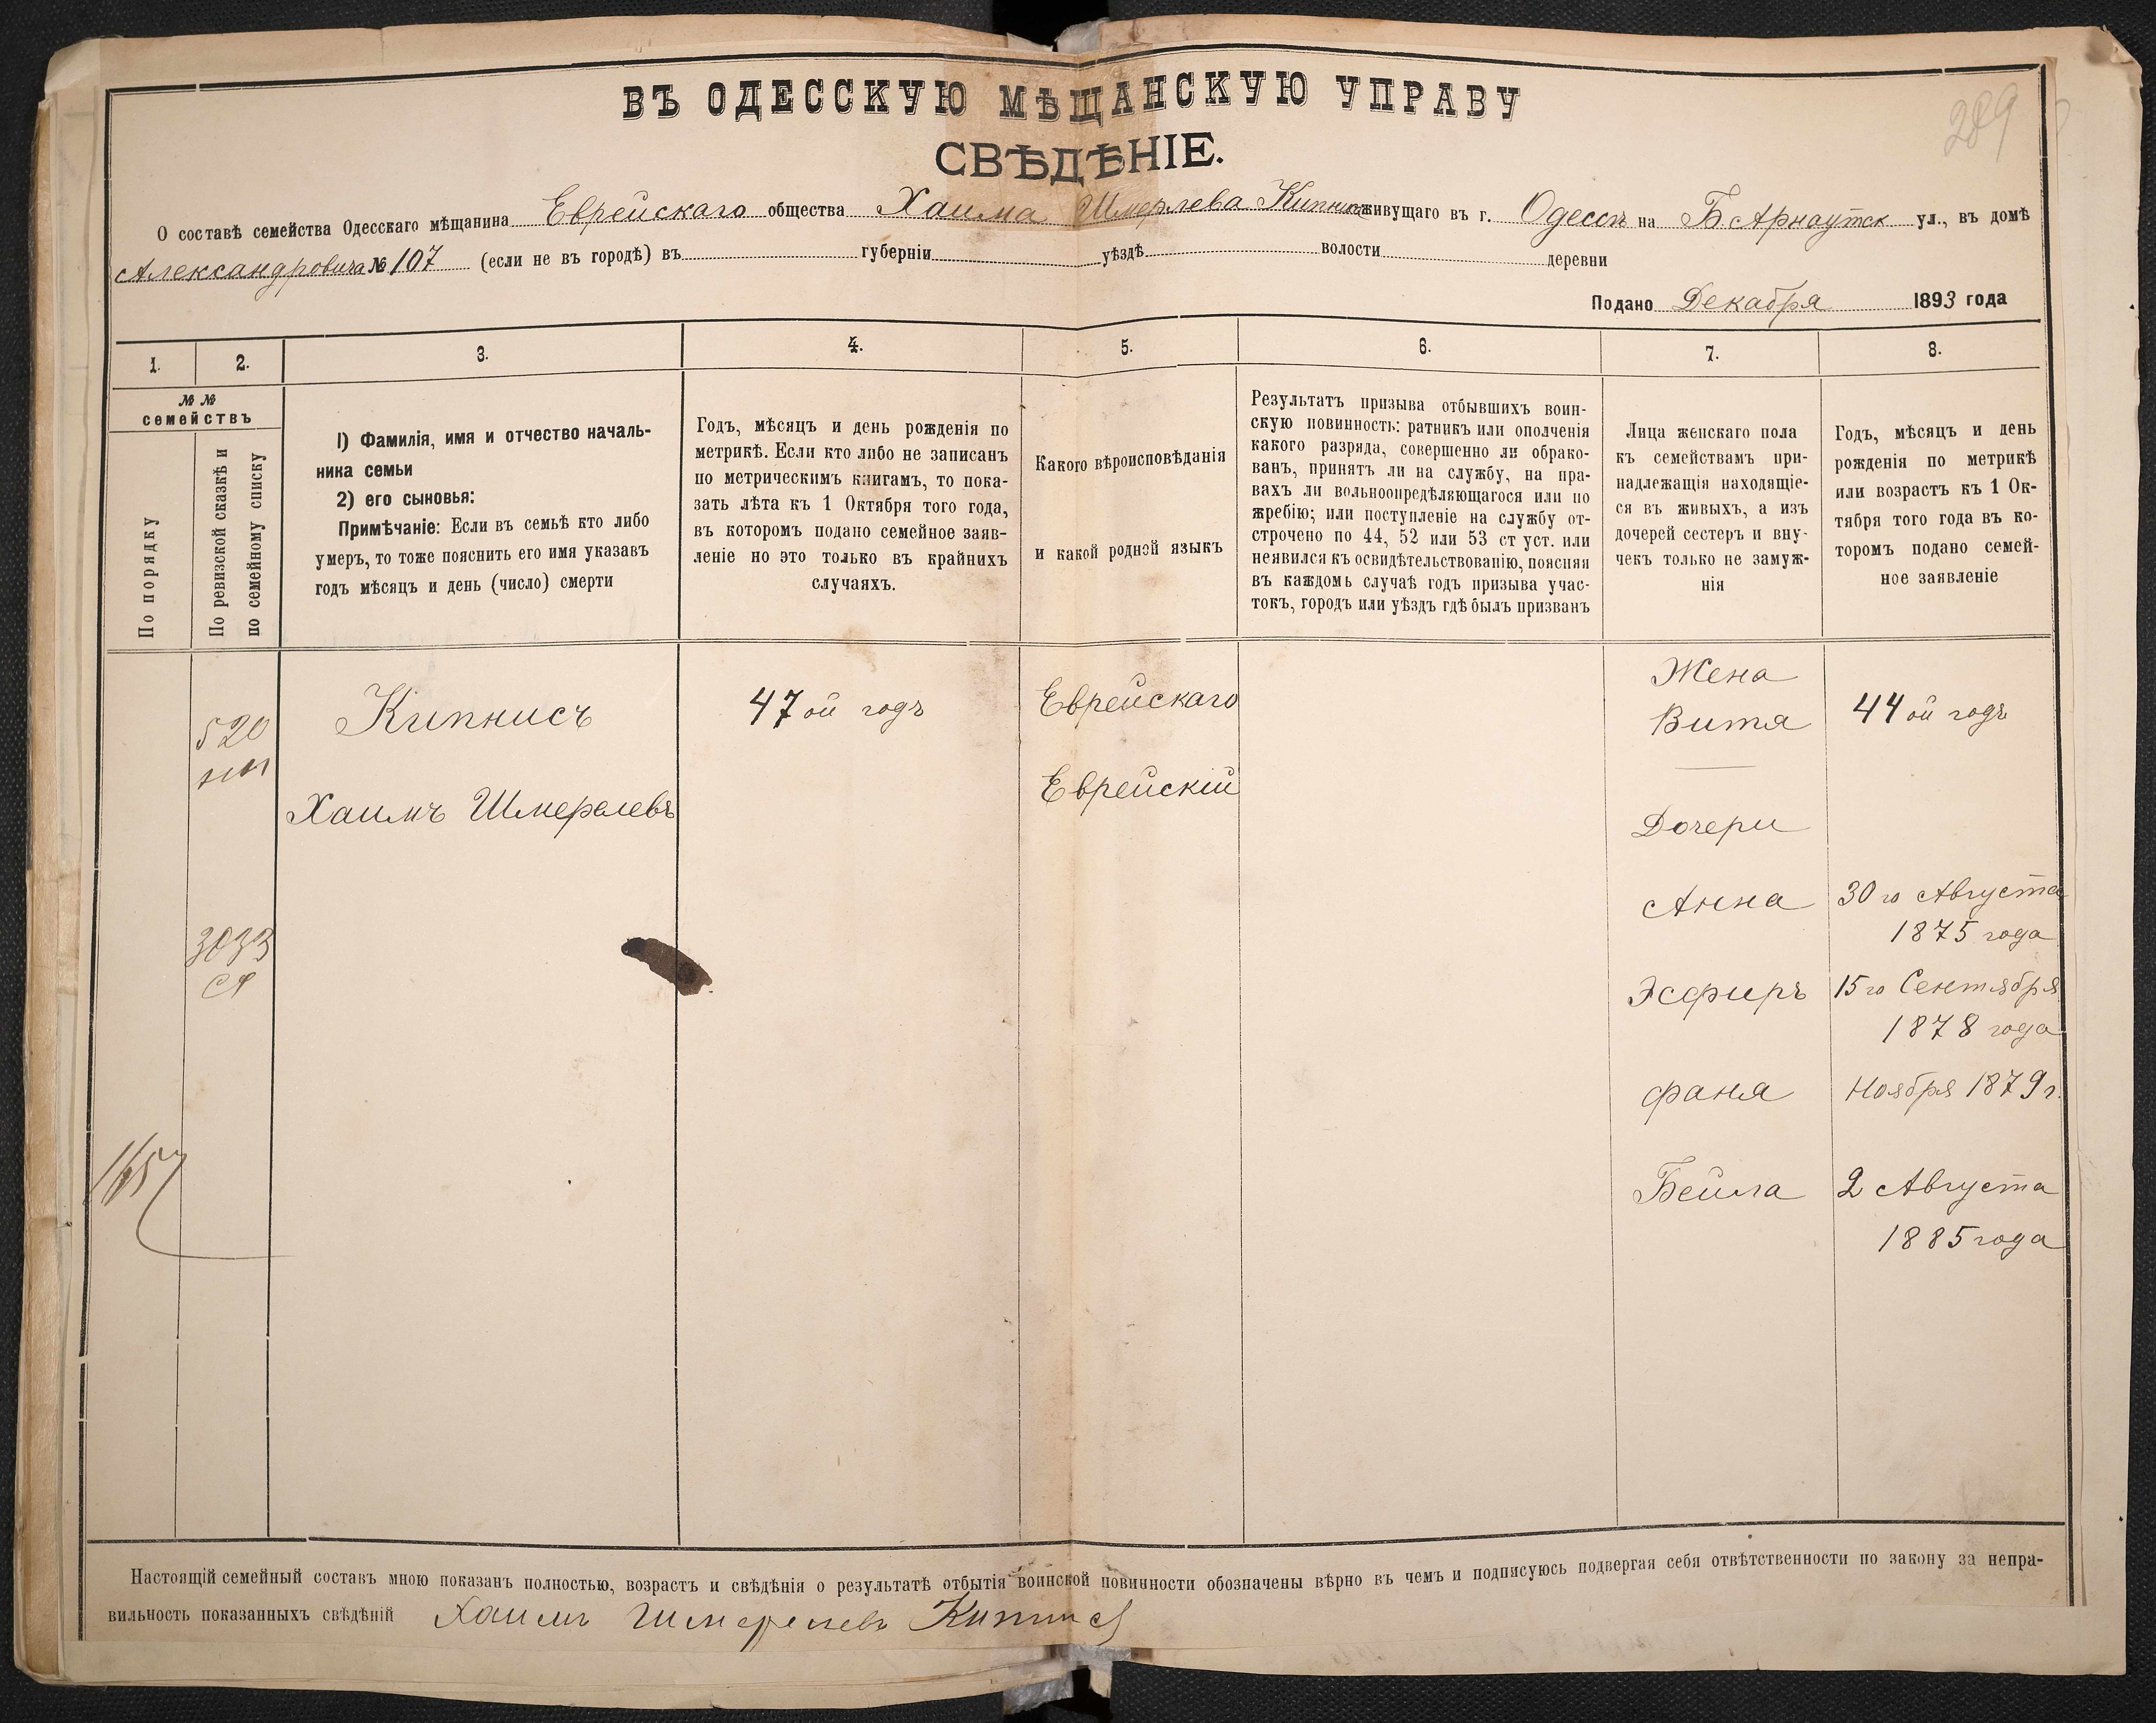 289
ВЪ ОДЕССКУЮ МѢЩАНСКУЮ УПРАВУ
СВѢДѢНІЕ.
О составѣ семейства Одесскаго мѣщанина Еврейскаго общества Хаима Шмерлева Кипниса живущаго въ г. Одессѣ на Б. Арнаутск ул., въ домѣ
Александровича № 107 (если не въ городѣ) въ губерніи уѣздѣ волости деревни
Подано Декабря 1893 года
1. 2. 3. 4. 5. 6. 7. 8.
№ №
семействъ
По порядку
По ревизской сказкѣ и
по семейному списку
1) Фамилія, имя и отчество началь-
ника семьи
2) его сыновья:
Примѣчаніе: Если въ семьѣ кто либо
умеръ, то тоже пояснить его имя указавъ
годъ мѣсяцъ и день (число) смерти
Годъ, мѣсяцъ и день рожденія по
метрикѣ. Если кто либо не записанъ
по метрическимъ книгамъ, то пока-
зать лѣта къ 1 Октября того года,
въ которомъ подано семейное заяв-
леніе но это только въ крайнихъ
случаяхъ.
Какого вѣроисповѣданія
и какой родной языкъ
Результатъ призыва отбывшихъ воин-
скую повинность: ратникъ или ополченія
какого разряда, совершенно ли обрако-
ванъ, принятъ ли на службу, на пра-
вахъ ли вольноопредѣляющагося или по
жребію; или поступленіе на службу от-
строчено по 44, 52 или 53 ст уст. или
неявился къ освидѣтельствованію, поясняя
въ каждомъ случаѣ годъ призыва учас-
токъ, городъ или уѣздъ гдѣ былъ призванъ
Лица женскаго пола
къ семействамъ при-
надлежащія находящіе-
ся въ живыхъ, а изъ
дочерей сестеръ и вну-
чекъ только не замуж-
нія
Годъ, мѣсяцъ и день
рожденія по метрикѣ
или возрастъ къ 1 Ок-
тября того года въ ко-
торомъ подано семей-
ное заявленіе
520
3033
1657
Кипнисъ
Хаимъ Шмерелевъ
47 ой годъ
Еврейскаго
Еврейскій
Жена
Витя 44 ой годъ
Дочери
Анна 30 го Августа
1875 года
Эсфирь 15 го Сентября
1878 года
Фаня Ноября 1879 г.
Бейла 2 Августа
1885 года
Настоящій семейный составъ мною показанъ полностью, возрастъ и свѣдѣнія о результатѣ отбытія воинской повинности обозначены вѣрно въ чемъ и подписуюсь подвергая себя отвѣтственности по закону за непра-
вильность показанныхъ свѣдѣній Хаимъ Шмерелевъ Кипнис